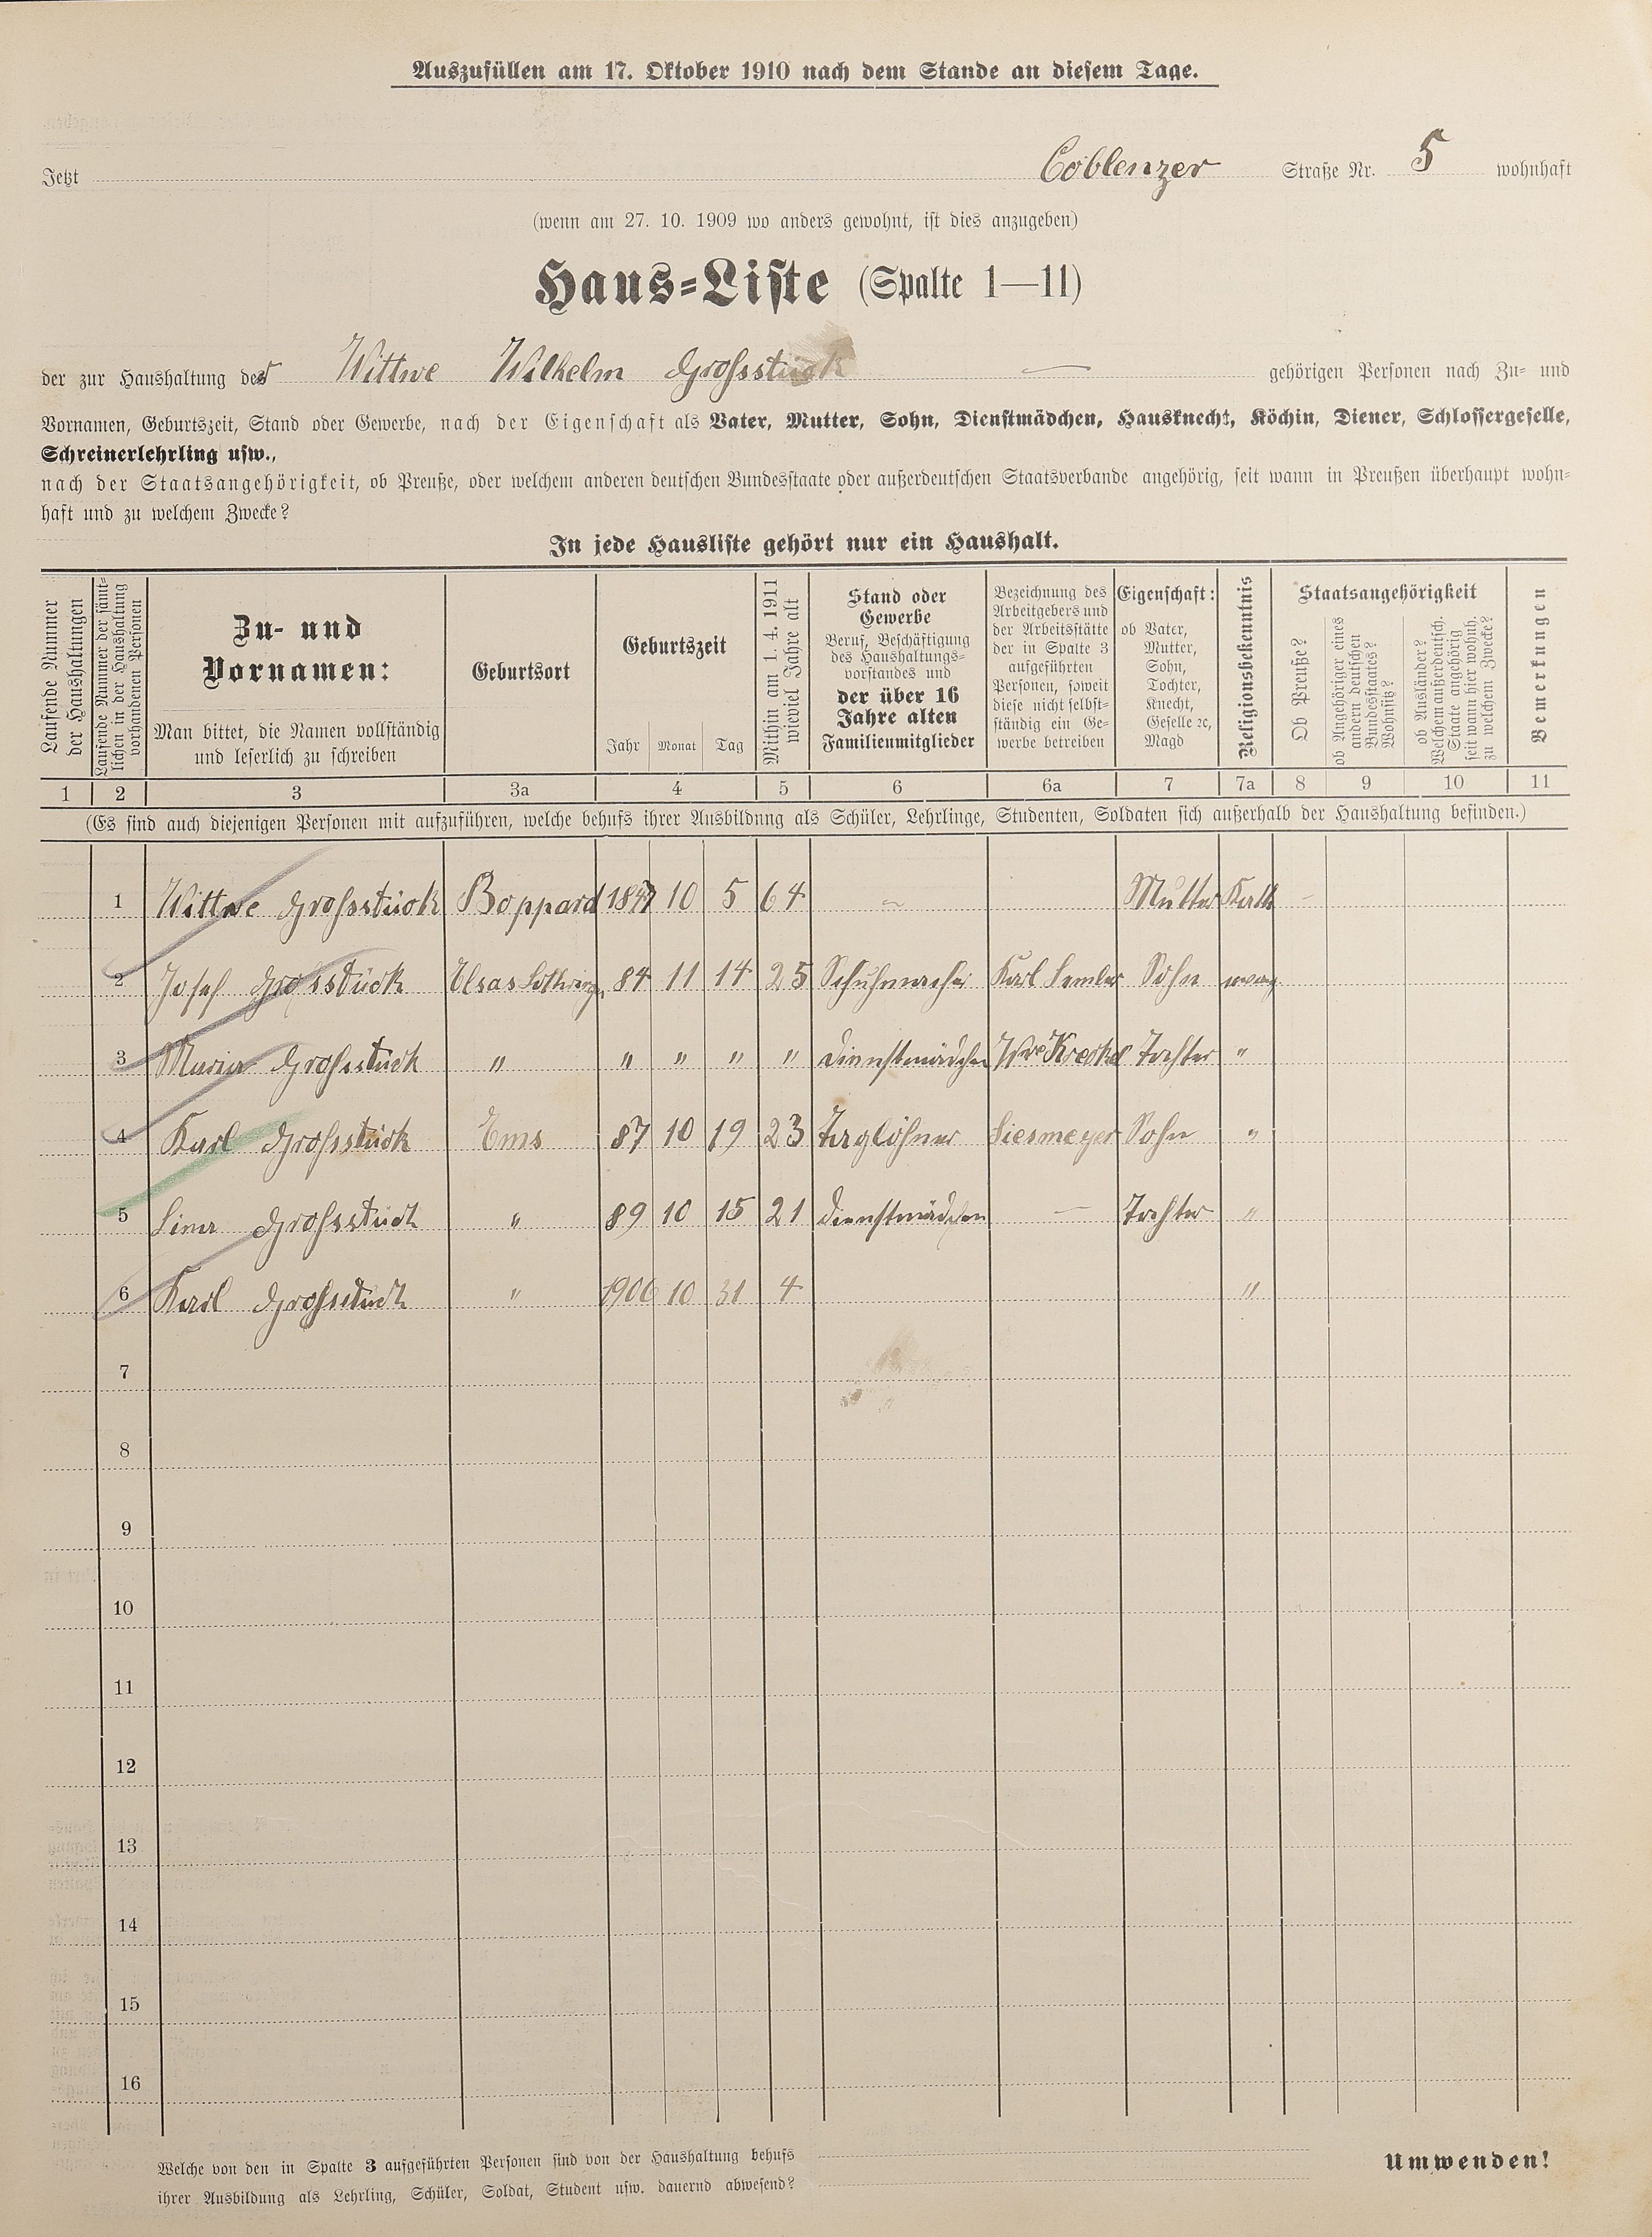 Auszufüllen am 17. Oktober 1910 nach dem Stande an diesem Tage.
Jetzt Coblenzer Straße Nr. 5 wohnhaft
(wenn am 27. 10. 1909 wo anders gewohnt, ist dies anzugeben)
Haus-Liste (Spalte 1—11)
der zur Haushaltung der Wittwe Wilhelm Grossstück — gehörigen Personen nach Zu- und
Vornamen, Geburtszeit, Stand oder Gewerbe, nach der Eigenschaft als Vater, Mutter, Sohn, Dienstmädchen, Hausknecht, Köchin, Diener, Schlossergeselle,
Schreinerlehrling usw.,
nach der Staatsangehörigkeit, ob Preuße, oder welchem anderen deutschen Bundesstaate oder außerdeutschen Staatsverbande angehörig, seit wann in Preußen überhaupt wohn-
haft und zu welchem Zwecke?
In jede Hausliste gehört nur ein Haushalt.
Laufende Nummer
der Haushaltungen
Laufende Nummer der sämt-
lichen in der Haushaltung
vorhandenen Personen
Zu- und
Vornamen:
Man bittet, die Namen vollständig
und leserlich zu schreiben
Geburtsort
Geburtszeit
Jahr Monat Tag
Mithin am 1. 4. 1911
wieviel Jahre alt
Stand oder
Gewerbe
Beruf, Beschäftigung
des Haushaltungs-
vorstandes und
der über 16
Jahre alten
Familienmitglieder
Bezeichnung des
Arbeitgebers und
der Arbeitsstätte
der in Spalte 3
aufgeführten
Personen, soweit
diese nicht selbst-
ständig ein Ge-
werbe betreiben
Eigenschaft:
ob Vater,
Mutter,
Sohn,
Tochter,
Knecht,
Geselle ꝛc,
Magd
Religionsbekenntnis
Staatsangehörigkeit
Ob Preuße?
ob Angehöriger eines
andern deutschen
Bundesstaates?
Wohnsitz?
ob Ausländer?
Welchem außerdeutsch.
Staate angehörig
seit wann hier wohnh.
zu welchem Zwecke?
Bemerkungen
1 2 3 3a 4 5 6 6a 7 7a 8 9 10 11
(Es sind auch diejenigen Personen mit aufzuführen, welche behufs ihrer Ausbildung als Schüler, Lehrlinge, Studenten, Soldaten sich außerhalb der Haushaltung befinden.)
1 Wittwe Grossstück Boppard 1847 10 5 64 Mutter Kath
2 Josef Grossstück Elsas Lothringen 84 11 14 25 Schuhmacher Karl Semler Sohn evang
3 Maria Grossstück " " " " " Dienstmädchen Wwe Tochter "
4 Karl Grossstück Ems 87 10 19 23 Taglöhner Siesmeyer Sohn "
5 Lina Grossstück " 89 10 15 21 Dienstmädchen — Tochter "
6 Karl Grossstück " 1906 10 31 4 "
7
8
9
10
11
12
13
14
15
16
Welche von den in Spalte 3 aufgeführten Personen sind von der Haushaltung behufs
ihrer Ausbildung als Lehrling, Schüler, Soldat, Student usw. dauernd abwesend?
Umwenden!